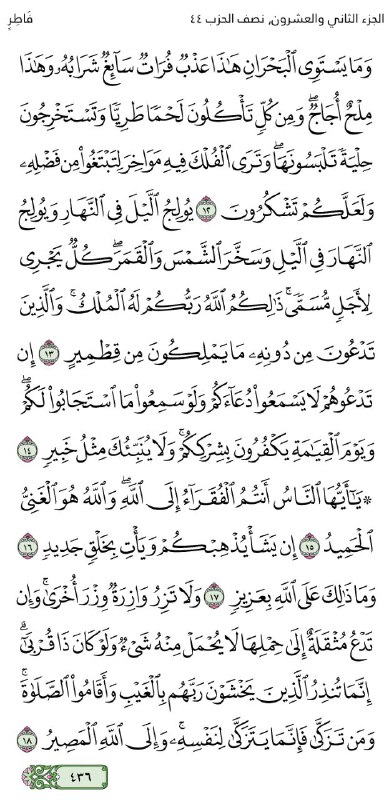 الجزء الثاني والعشرون، نصف الحزب ٤٤ فَاطِرٍ
وَمَا يَسْتَوِى ٱلْبَحْرَانِ هَٰذَا عَذْبٌ فُرَاتٌ سَآئِغٌ شَرَابُهُۥ وَهَٰذَا
مِلْحٌ أُجَاجٌ ۖ وَمِن كُلٍّ تَأْكُلُونَ لَحْمًا طَرِيًّا وَتَسْتَخْرِجُونَ
حِلْيَةً تَلْبَسُونَهَا ۖ وَتَرَى ٱلْفُلْكَ فِيهِ مَوَاخِرَ لِتَبْتَغُوا۟ مِن فَضْلِهِۦ
وَلَعَلَّكُمْ تَشْكُرُونَ ١٢ يُولِجُ ٱلَّيْلَ فِى ٱلنَّهَارِ وَيُولِجُ
ٱلنَّهَارَ فِى ٱلَّيْلِ وَسَخَّرَ ٱلشَّمْسَ وَٱلْقَمَرَ ۖ كُلٌّ يَجْرِى
لِأَجَلٍ مُّسَمًّى ۚ ذَٰلِكُمُ ٱللَّهُ رَبُّكُمْ لَهُ ٱلْمُلْكُ ۚ وَٱلَّذِينَ
تَدْعُونَ مِن دُونِهِۦ مَا يَمْلِكُونَ مِن قِطْمِيرٍ ١٣ إِن
تَدْعُوهُمْ لَا يَسْمَعُوا۟ دُعَآءَكُمْ وَلَوْ سَمِعُوا۟ مَا ٱسْتَجَابُوا۟ لَكُمْ ۖ
وَيَوْمَ ٱلْقِيَٰمَةِ يَكْفُرُونَ بِشِرْكِكُمْ ۚ وَلَا يُنَبِّئُكَ مِثْلُ خَبِيرٍ ١٤
۞ يَٰٓأَيُّهَا ٱلنَّاسُ أَنتُمُ ٱلْفُقَرَآءُ إِلَى ٱللَّهِ ۖ وَٱللَّهُ هُوَ ٱلْغَنِىُّ
ٱلْحَمِيدُ ١٥ إِن يَشَأْ يُذْهِبْكُمْ وَيَأْتِ بِخَلْقٍ جَدِيدٍ ١٦
وَمَا ذَٰلِكَ عَلَى ٱللَّهِ بِعَزِيزٍ ١٧ وَلَا تَزِرُ وَازِرَةٌ وِزْرَ أُخْرَىٰ ۚ وَإِن
تَدْعُ مُثْقَلَةٌ إِلَىٰ حِمْلِهَا لَا يُحْمَلْ مِنْهُ شَىْءٌ وَلَوْ كَانَ ذَا قُرْبَىٰٓ ۗ
إِنَّمَا تُنذِرُ ٱلَّذِينَ يَخْشَوْنَ رَبَّهُم بِٱلْغَيْبِ وَأَقَامُوا۟ ٱلصَّلَوٰةَ ۚ
وَمَن تَزَكَّىٰ فَإِنَّمَا يَتَزَكَّىٰ لِنَفْسِهِۦ ۚ وَإِلَى ٱللَّهِ ٱلْمَصِيرُ ١٨
٤٣٦